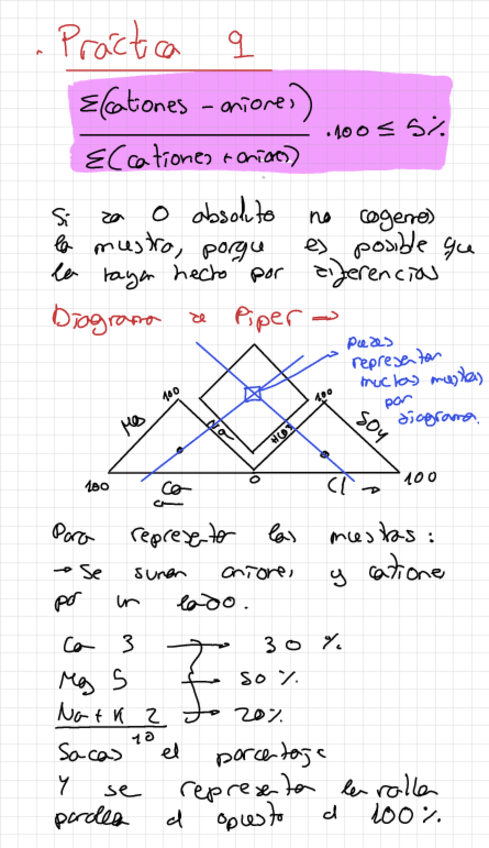 . Práctica 9
Σ(cationes - aniones)
Σ(cationes + aniones) .100 ≤ 5%
Si za 0 absoluto no cogemos
la muestra, porque es posible que
la hayan hecho por diferencias
Diagrama de Piper →
puedes
representar
muchas muestras
por
diagrama.
100
100
Mg
Na
HCO3
SO4
100
Ca
0
Cl →
100
Para representar las muestras :
→ Se suman aniones y cationes
por un lado.
Ca 3 → 30 %.
Mg 5 → 50 %.
Na + K 2 → 20%.
10
Sacas el porcentaje
Y se representa la ralla
paralela al opuesto al 100%.